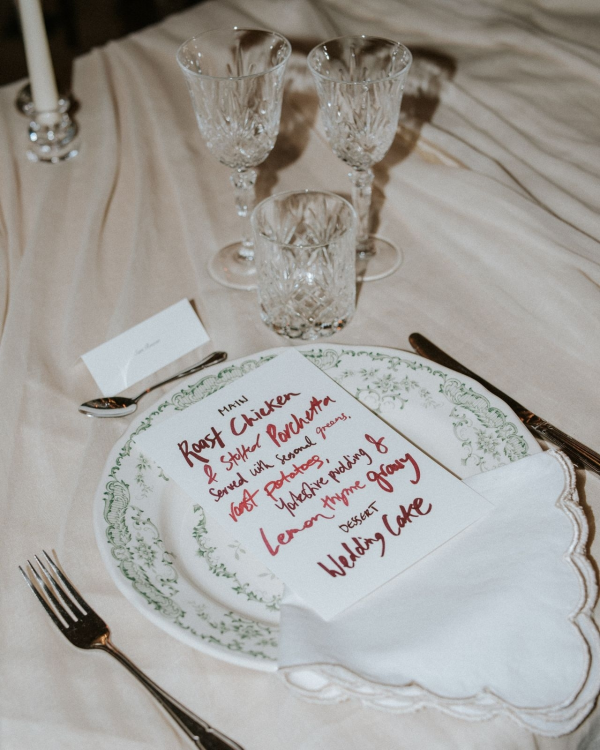 MAIN
Roast Chicken
& Stuffed Porchetta
Served with seasonal greens,
roast potatoes,
Yorkshire pudding &
Lemon thyme gravy
DESSERT
Wedding Cake